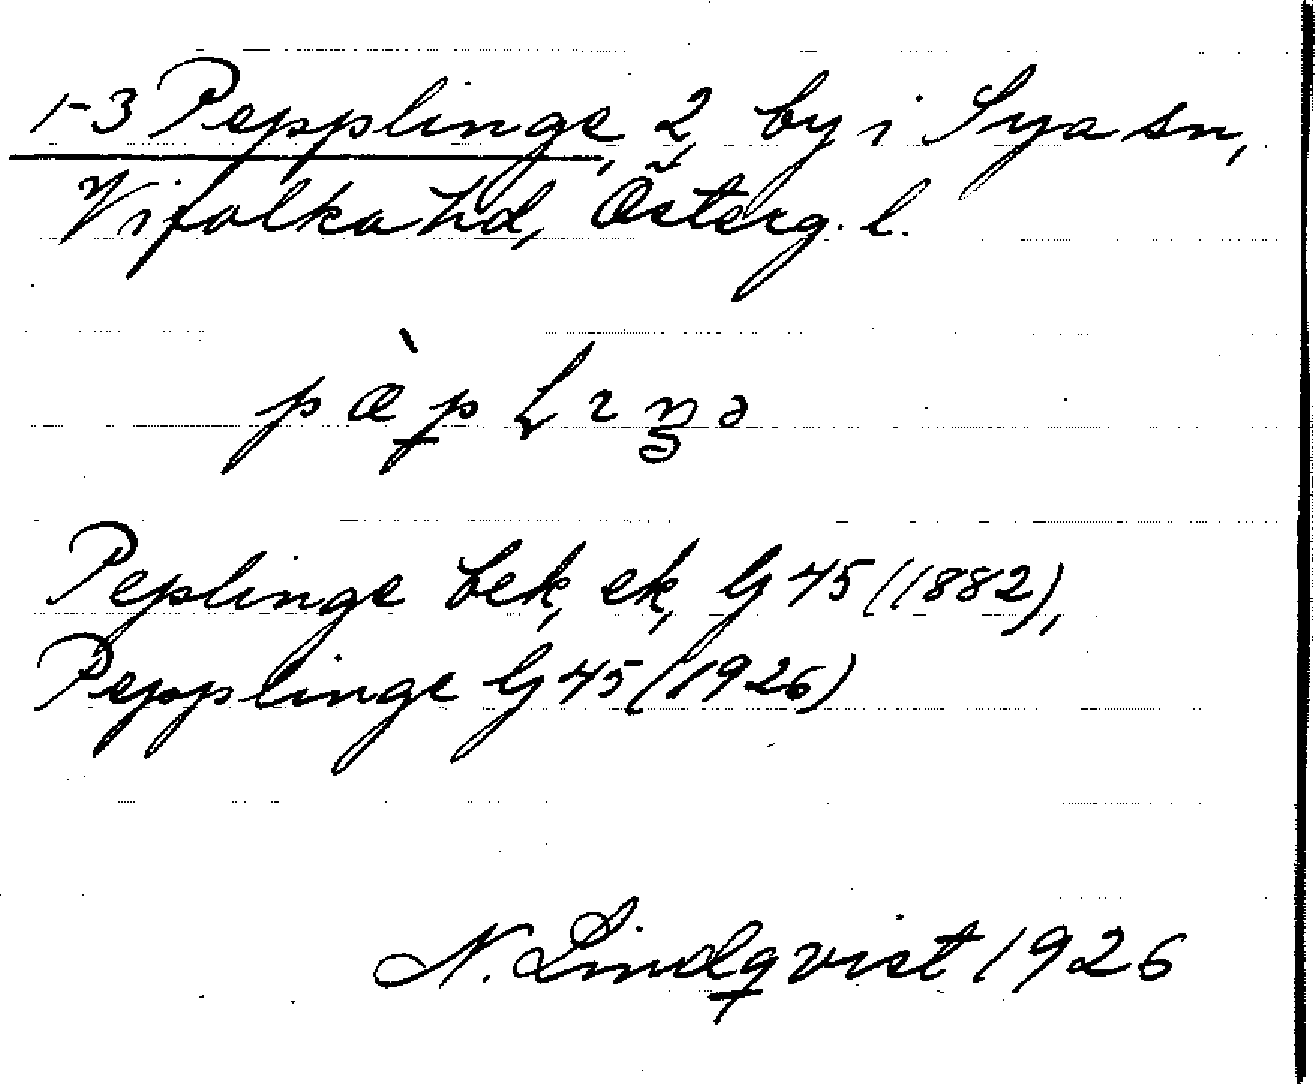 1-3 Pepplinge, 2, by i Sya sn,
Vifolka hd, Österg. l.
pæ̀plıŋə
Peplinge bek, ek, Gj 45 (1882),
Pepplinge Gj 45 (1926)
N. Lindqvist 1926